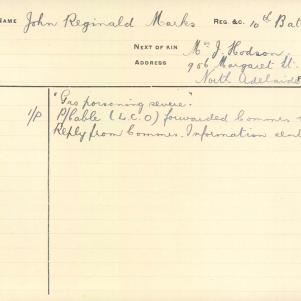 NAME John Reginald Marks REG &C. 10th Bat
NEXT OF KIN Mrs J. Hodson
ADDRESS 906 Margaret St.
North Adelaide
"Gas poisoning severe."
1/P P/Cable (L.C.O) forwarded Commr
Reply from Commr. Information